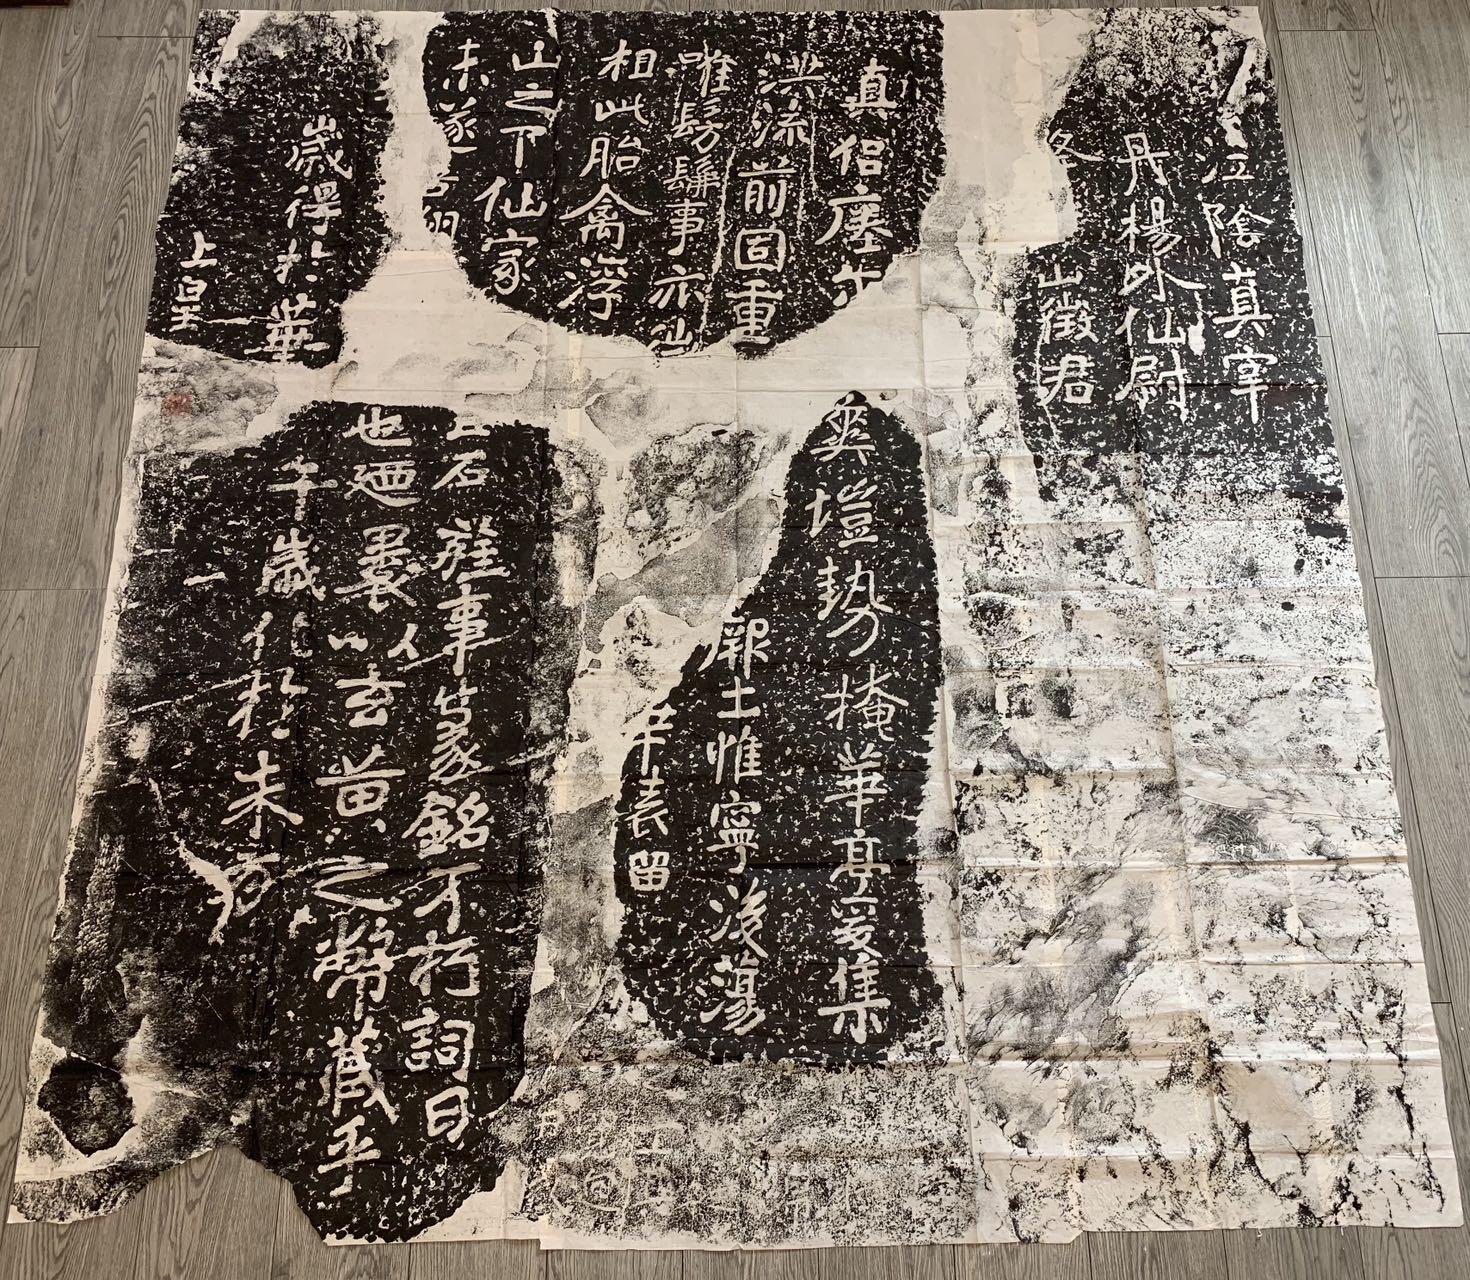 上皇
歲得於華
午歲化於朱方
未遂吾翔
也廼裹以玄黃之幣藏乎
山之下仙家
石旌事篆銘不朽詞曰
相此胎禽浮
表留
唯髣髴事亦
厥土惟寧後蕩
洪流前固重
爽塏勢掩華亭爰集
真侶瘞尒
夅山徵君
丹楊外仙尉
江陰真宰